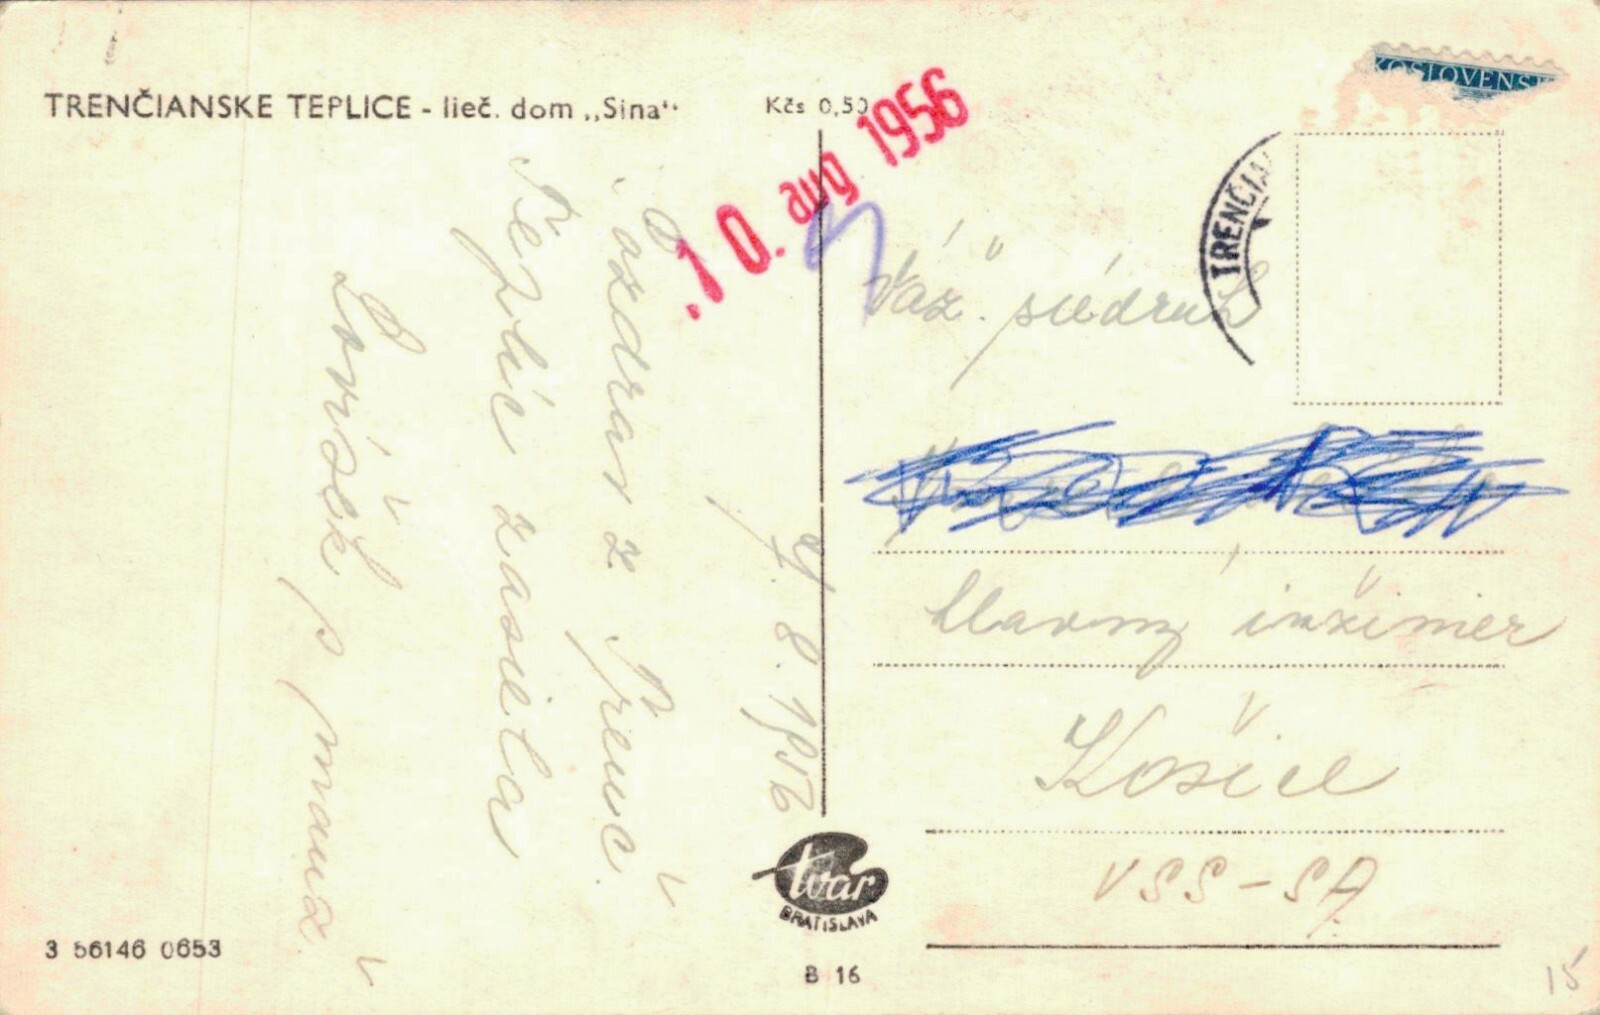 TRENČIANSKE TEPLICE - lieč. dom „Sina“
Kčs 0,50
10. aug 1956
KOSLOVENS
TRENČIA
9. 8. 1956
Pozdrav z Trenč.
Teplíc zasiela
Lovíšek p
Váž. súdruh
hlavný inžinier
Košice
VSS - SA
tvar
BRATISLAVA
3 56146 0653
B 16
15